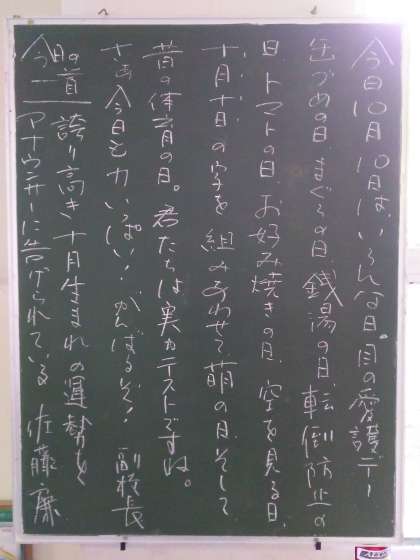 今日10月10日は、いろんな日。目の愛護デー
缶づめの日、まぐろの日、銭湯の日、転倒防止の
日、トマトの日、お好み焼きの日、空を見る日、
十月十日の字を組みあわせて萌の日、そして
昔の体育の日。君たちは実力テストですね。
さあ今日も力いっぱい!がんばるぞ! 副校長
今日の一首
誇り高き十月生まれの運勢を
アナウンサーに告げられている 佐藤廉